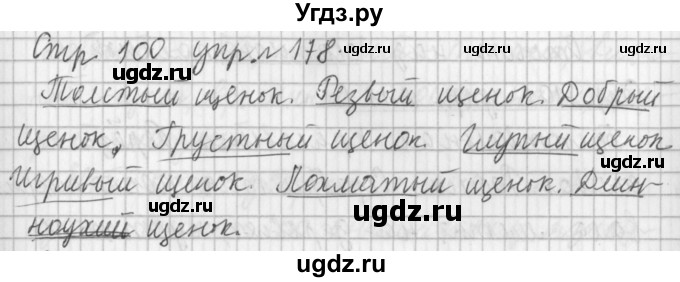 Угдз.ру
Стр 100 упр. 178.
ugdz.ru ugdz.ru
ugdz.ru
Толстый щенок. Резвый щенок. Добрый
ugdz.ru
щенок, Грустный щенок. Глупый щенок
ugdz.ru
игривый щенок. Лохматый щенок. Длин-
ugdz.ru ugdz.ru
ugdz.ru
ноухий щенок.
ugdz.ru